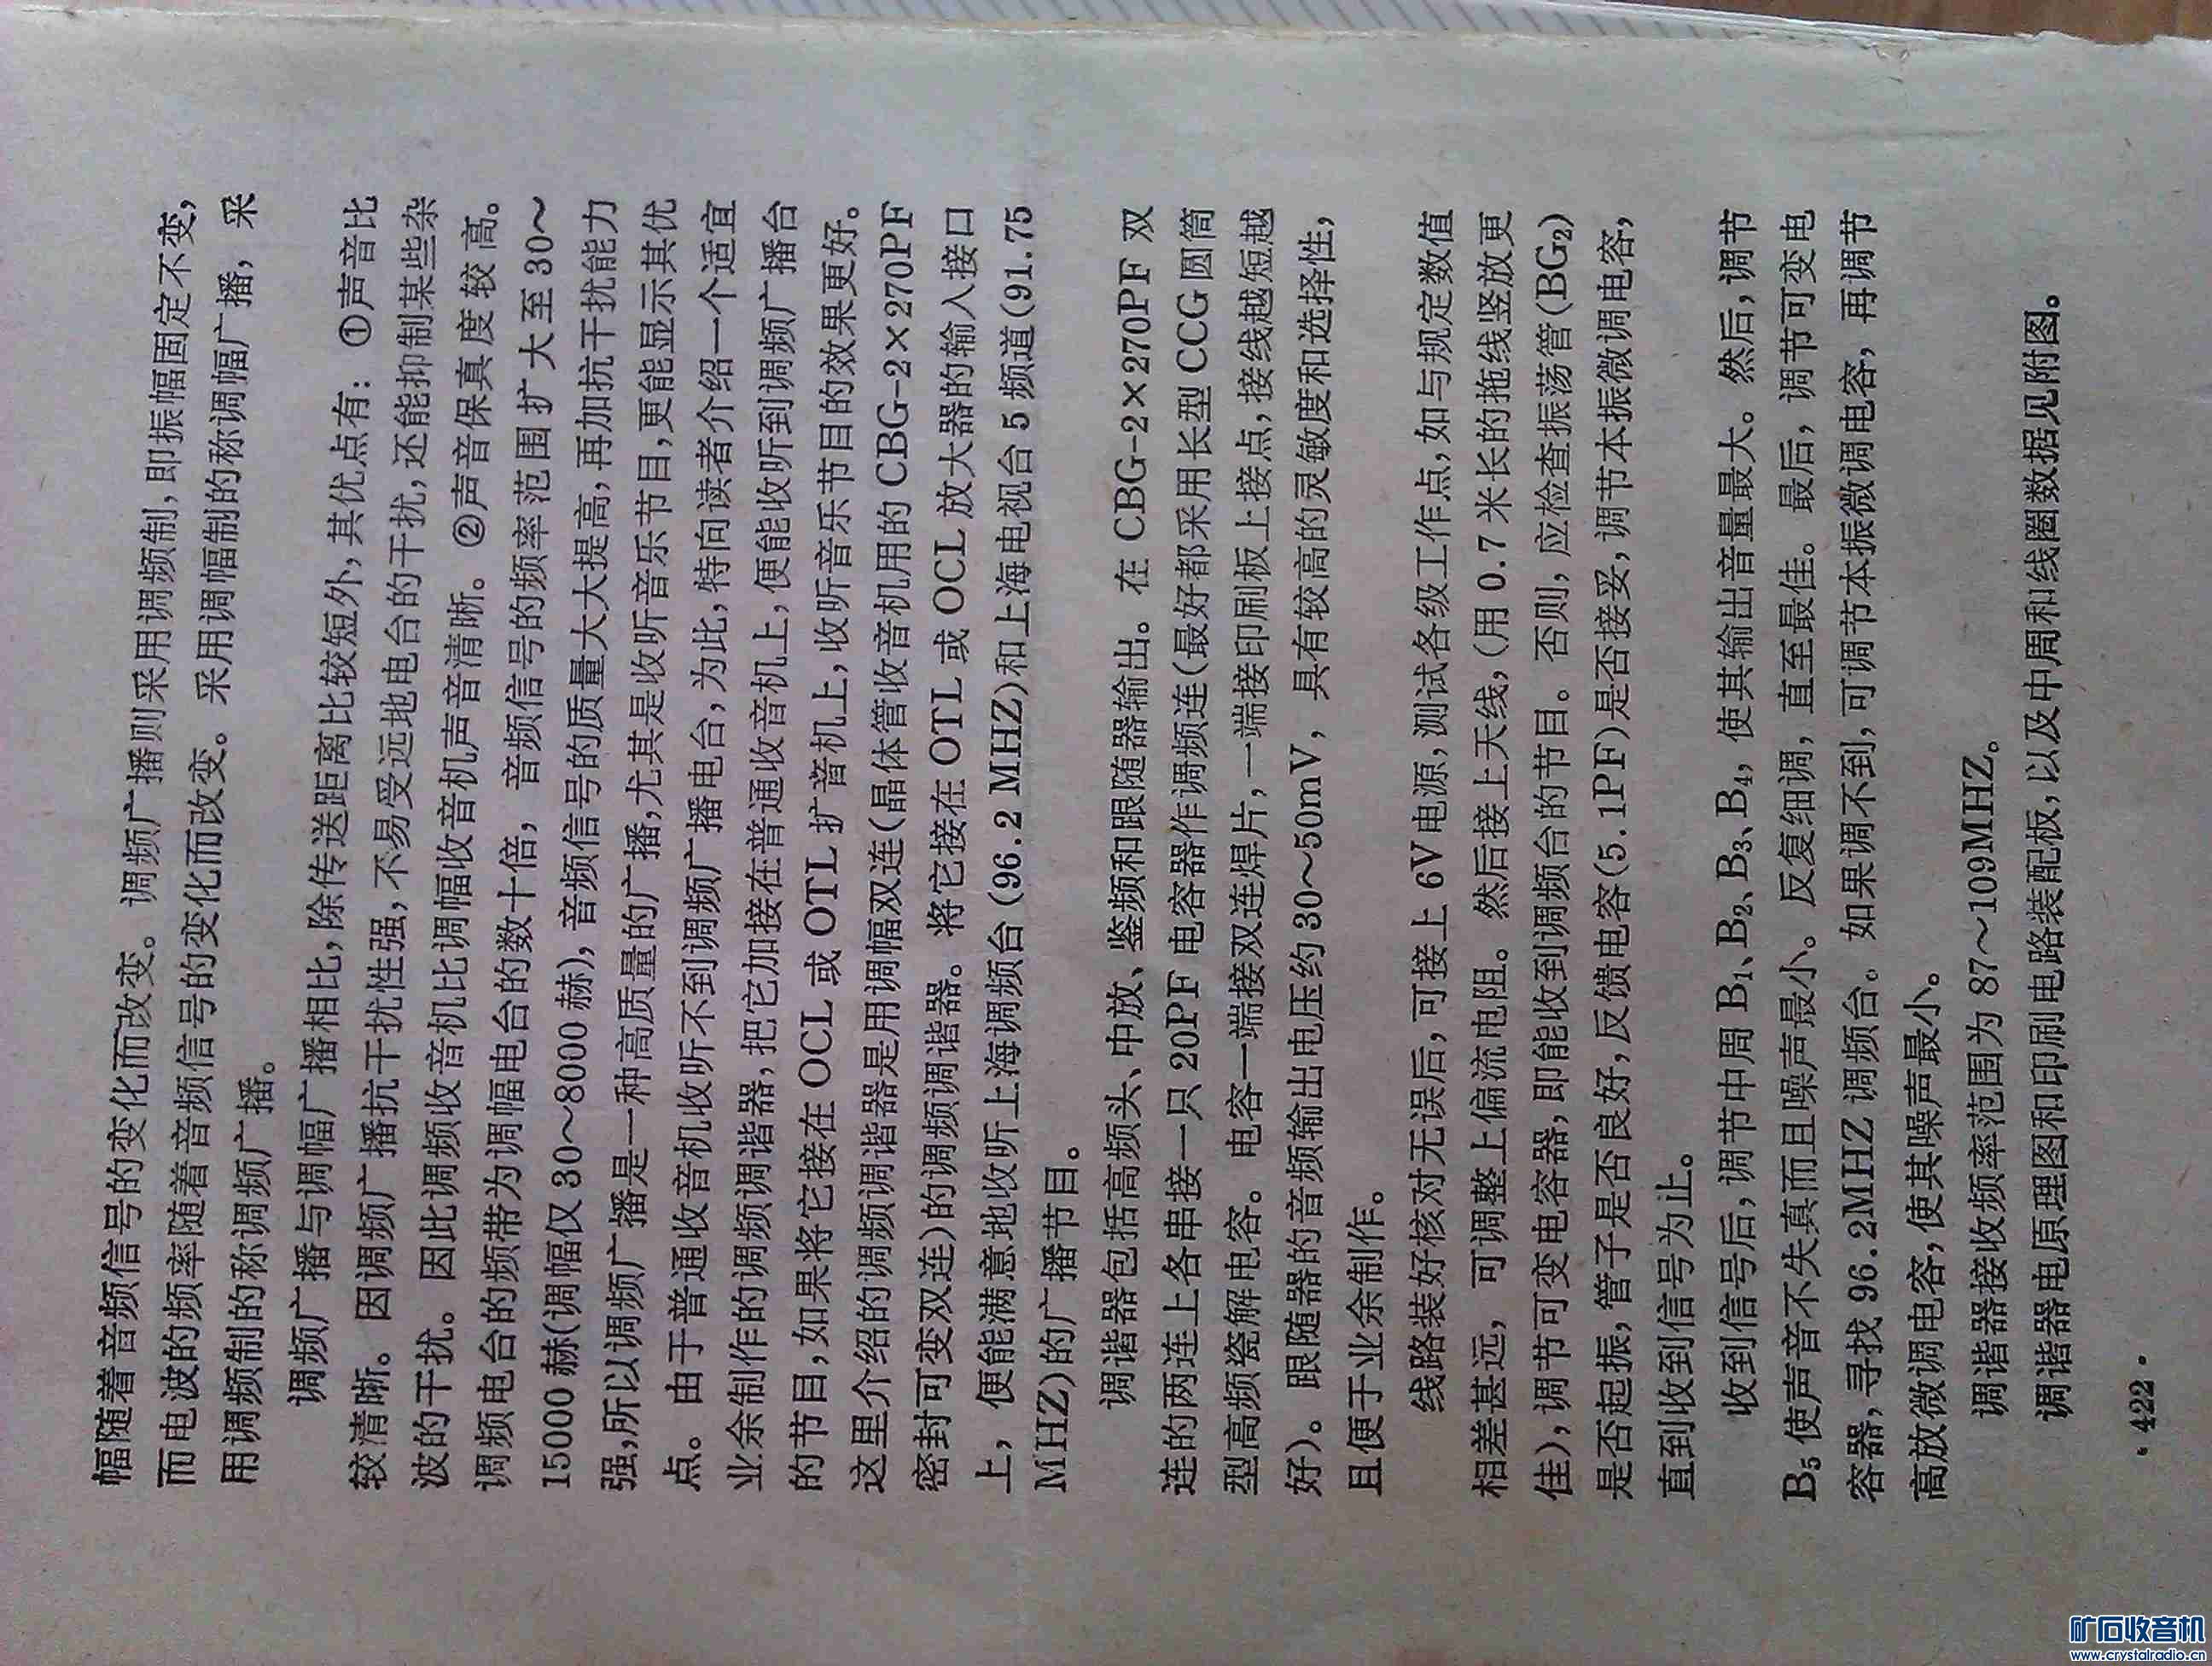 幅随着音频信号的变化而改变。调频广播则采用调频制，即振幅固定不变，
而电波的频率随着音频信号的变化而改变。采用调幅制的称调幅广播，采
用调频制的称调频广播。
调频广播与调幅广播相比，除传送距离比较短外，其优点有：①声音比
较清晰。因调频广播抗干扰性强，不易受远地电台的干扰，还能抑制某些杂
波的干扰。因此调频收音机比调幅收音机声音清晰。②声音保真度较高。
调频电台的频带为调幅电台的数十倍，音频信号的频率范围扩大至30～
15000赫（调幅仅30～8000赫），音频信号的质量大大提高，再加抗干扰能力
强，所以调频广播是一种高质量的广播，尤其是收听音乐节目，更能显示其优
点。由于普通收音机收听不到调频广播电台，为此，特向读者介绍一个适宜
业余制作的调频调谐器，把它加接在普通收音机上，便能收听到调频广播台
的节目，如果将它接在OCL或OTL扩音机上，收听音乐节目的效果更好。
这里介绍的调频调谐器是用调幅双连（晶体管收音机用的CBG-2×270PF
密封可变双连）的调频调谐器。将它接在OTL或OCL放大器的输入接口
上，便能满意地收听上海调频台（96.2MHZ）和上海电视台5频道（91.75
MHZ）的广播节目。
调谐器包括高频头、中放、鉴频和跟随器输出。在CBG-2×270PF双
连的两连上各串接一只20PF电容器作调频连（最好都采用长型CCG圆筒
型高频瓷解电容。电容一端接双连焊片，一端接印刷板上接点，接线越短越
好）。跟随器的音频输出电压约30～50mV，具有较高的灵敏度和选择性，
且便于业余制作。
线路装好核对无误后，可接上6V电源，测试各级工作点，如与规定数值
相差甚远，可调整上偏流电阻。然后接上天线，（用0.7米长的拖线竖放更
佳），调节可变电容器，即能收到调频台的节目。否则，应检查振荡管（BG₂）
是否起振，管子是否良好，反馈电容（5.1PF）是否接妥，调节本振微调电容，
直到收到信号为止。
收到信号后，调节中周B₁、B₂、B₃、B₄，使其输出音量最大。然后，调节
B₅使声音不失真而且噪声最小。反复细调，直至最佳。最后，调节可变电
容器，寻找96.2MHZ调频台。如果调不到，可调节本振微调电容，再调节
高放微调电容，使其噪声最小。
调谐器接收频率范围为87～109MHZ。
调谐器电原理图和印刷电路装配板，以及中周和线圈数据见附图。
·422·
矿石收音机
www.crystalradio.cn